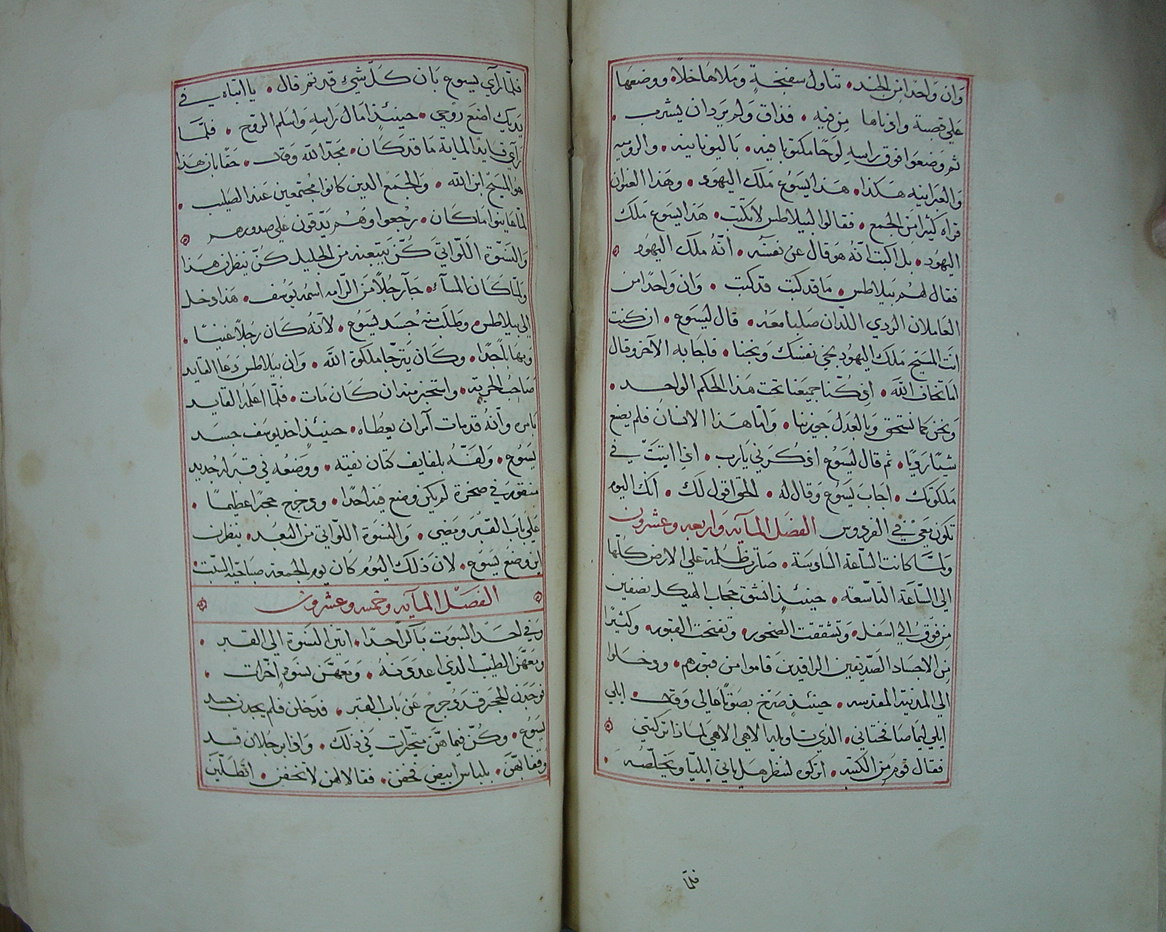 وان واحدا من الجند • تناول سفنجة وملاها خلا • ووضعها
على قصبة وادناها من فيه • فذاق ولم يرد ان يشرب •
ثم وضعوا فوق راسه لوحا مكتوبا فيه • باليونانيه • والروميه
والعبرانيه هكذا • هذا يسوع ملك اليهود • وهذا العنوان
قراه كثيرا من الجمع • فقالوا لبيلاطس لا تكتب • هذا يسوع ملك
اليهود • بل اكتب انه هو قال عن نفسه • انه ملك اليهود
فقال لهم بيلاطس • ما قد كتبت قد كتبت • وان واحدا من
العاملان الردي اللذان صلبا معه • قال ليسوع • ان كنت
انت المسيح ملك اليهود نجي نفسك ونجنا • فاجابه الآخر وقال
اما تخاف الله • اذ كنا جميعنا تحت هذا الحكم الواحد •
ونحن كما نستحق وبالعدل جوزينا • واما هذا الانسان فلم يصنع
شيئا رديا • ثم قال ليسوع اذكرني يا رب • اذا اتيت في
ملكوتك • اجاب يسوع وقال له • الحق اقول لك • انك اليوم
تكون معي في الفردوس الفصل المايه واربعه وعشرون
ولما كانت الساعة السادسة • صارت ظلمة على الارض كلها
الى الساعة التاسعه • حينئذ انشق حجاب الهيكل بنصفين
من فوق الى اسفل • وتشققت الصخور • وتفتحت القبور • وكثيرا
من الاجساد الصديقين الراقدين قاموا من قبورهم • ودخلوا
الى المدينة المقدسه • حينئذ صرخ بصوتا عالي وقال • ايلي
ايلي ليما صافختاني • الذي تاويله الاهي الاهي لماذا تركتني
فقال قوم من الكتبه • اتركوه لننظر هل ياتي ايليا ويخلصه •
فلما
فلما راي يسوع بان كل شي قد تم قال • يا ابتاه في
يديك اضع روحي • حينئذ امال راسه واسلم الروح • فلما
راي قايد الماية ما قد كان • مجد الله وقال • حقا ان هذا
هو المسيح ابن الله • والجمع الذين كانوا مجتمعين عند الصليب •
لما عاينوا ما كان • رجعوا وهم يدقون على صدورهم
والنسوة اللواتي كن يتبعنه من الجليل كن ينظرن هذا
ولما كان المسآء • جآء رجلا من الرامه اسمه يوسف • هذا دخل
الى بيلاطس • وطلب منه جسد يسوع • لانه كان رجلا غنيا •
وكان يترجا ملكوة الله • وان بيلاطس دعا القايد
صاحب الحربه • واستخبر منه ان كان مات • فلما اعلمه القايد
بامره وانه قد مات آمر ان يعطاه • حينئذ اخد يوسف جسد
يسوع • ولفه بلفايف كتان نقيه • ووضعه في قبر له جديد
منقور في صخرة لم يكن وضع فيه احدا • ودحرج حجرا عظيما •
على باب القبر ومضى • والنسوة اللواتي من البعد • ينظرن
اين وضع يسوع • لان ذلك اليوم كان يوم الجمعه صباحية السبت •
الفصل المايه وخمسه وعشرون
وفي احد السبوت باكرا جدا • اتين النسوة الى القبر •
ومعهن الطيب الذي اعددونه • ومعهن نسوة اخرات •
فوجدن الحجر قد دحرج عن باب القبر • فدخلن فلم يجدن جسد
يسوع • وكن فيما هن متحيرات في ذلك • واذا رجلان قد
وقفا بهن • بلباس ابيض • فقالا لهن لا تخفن • اتطلبن